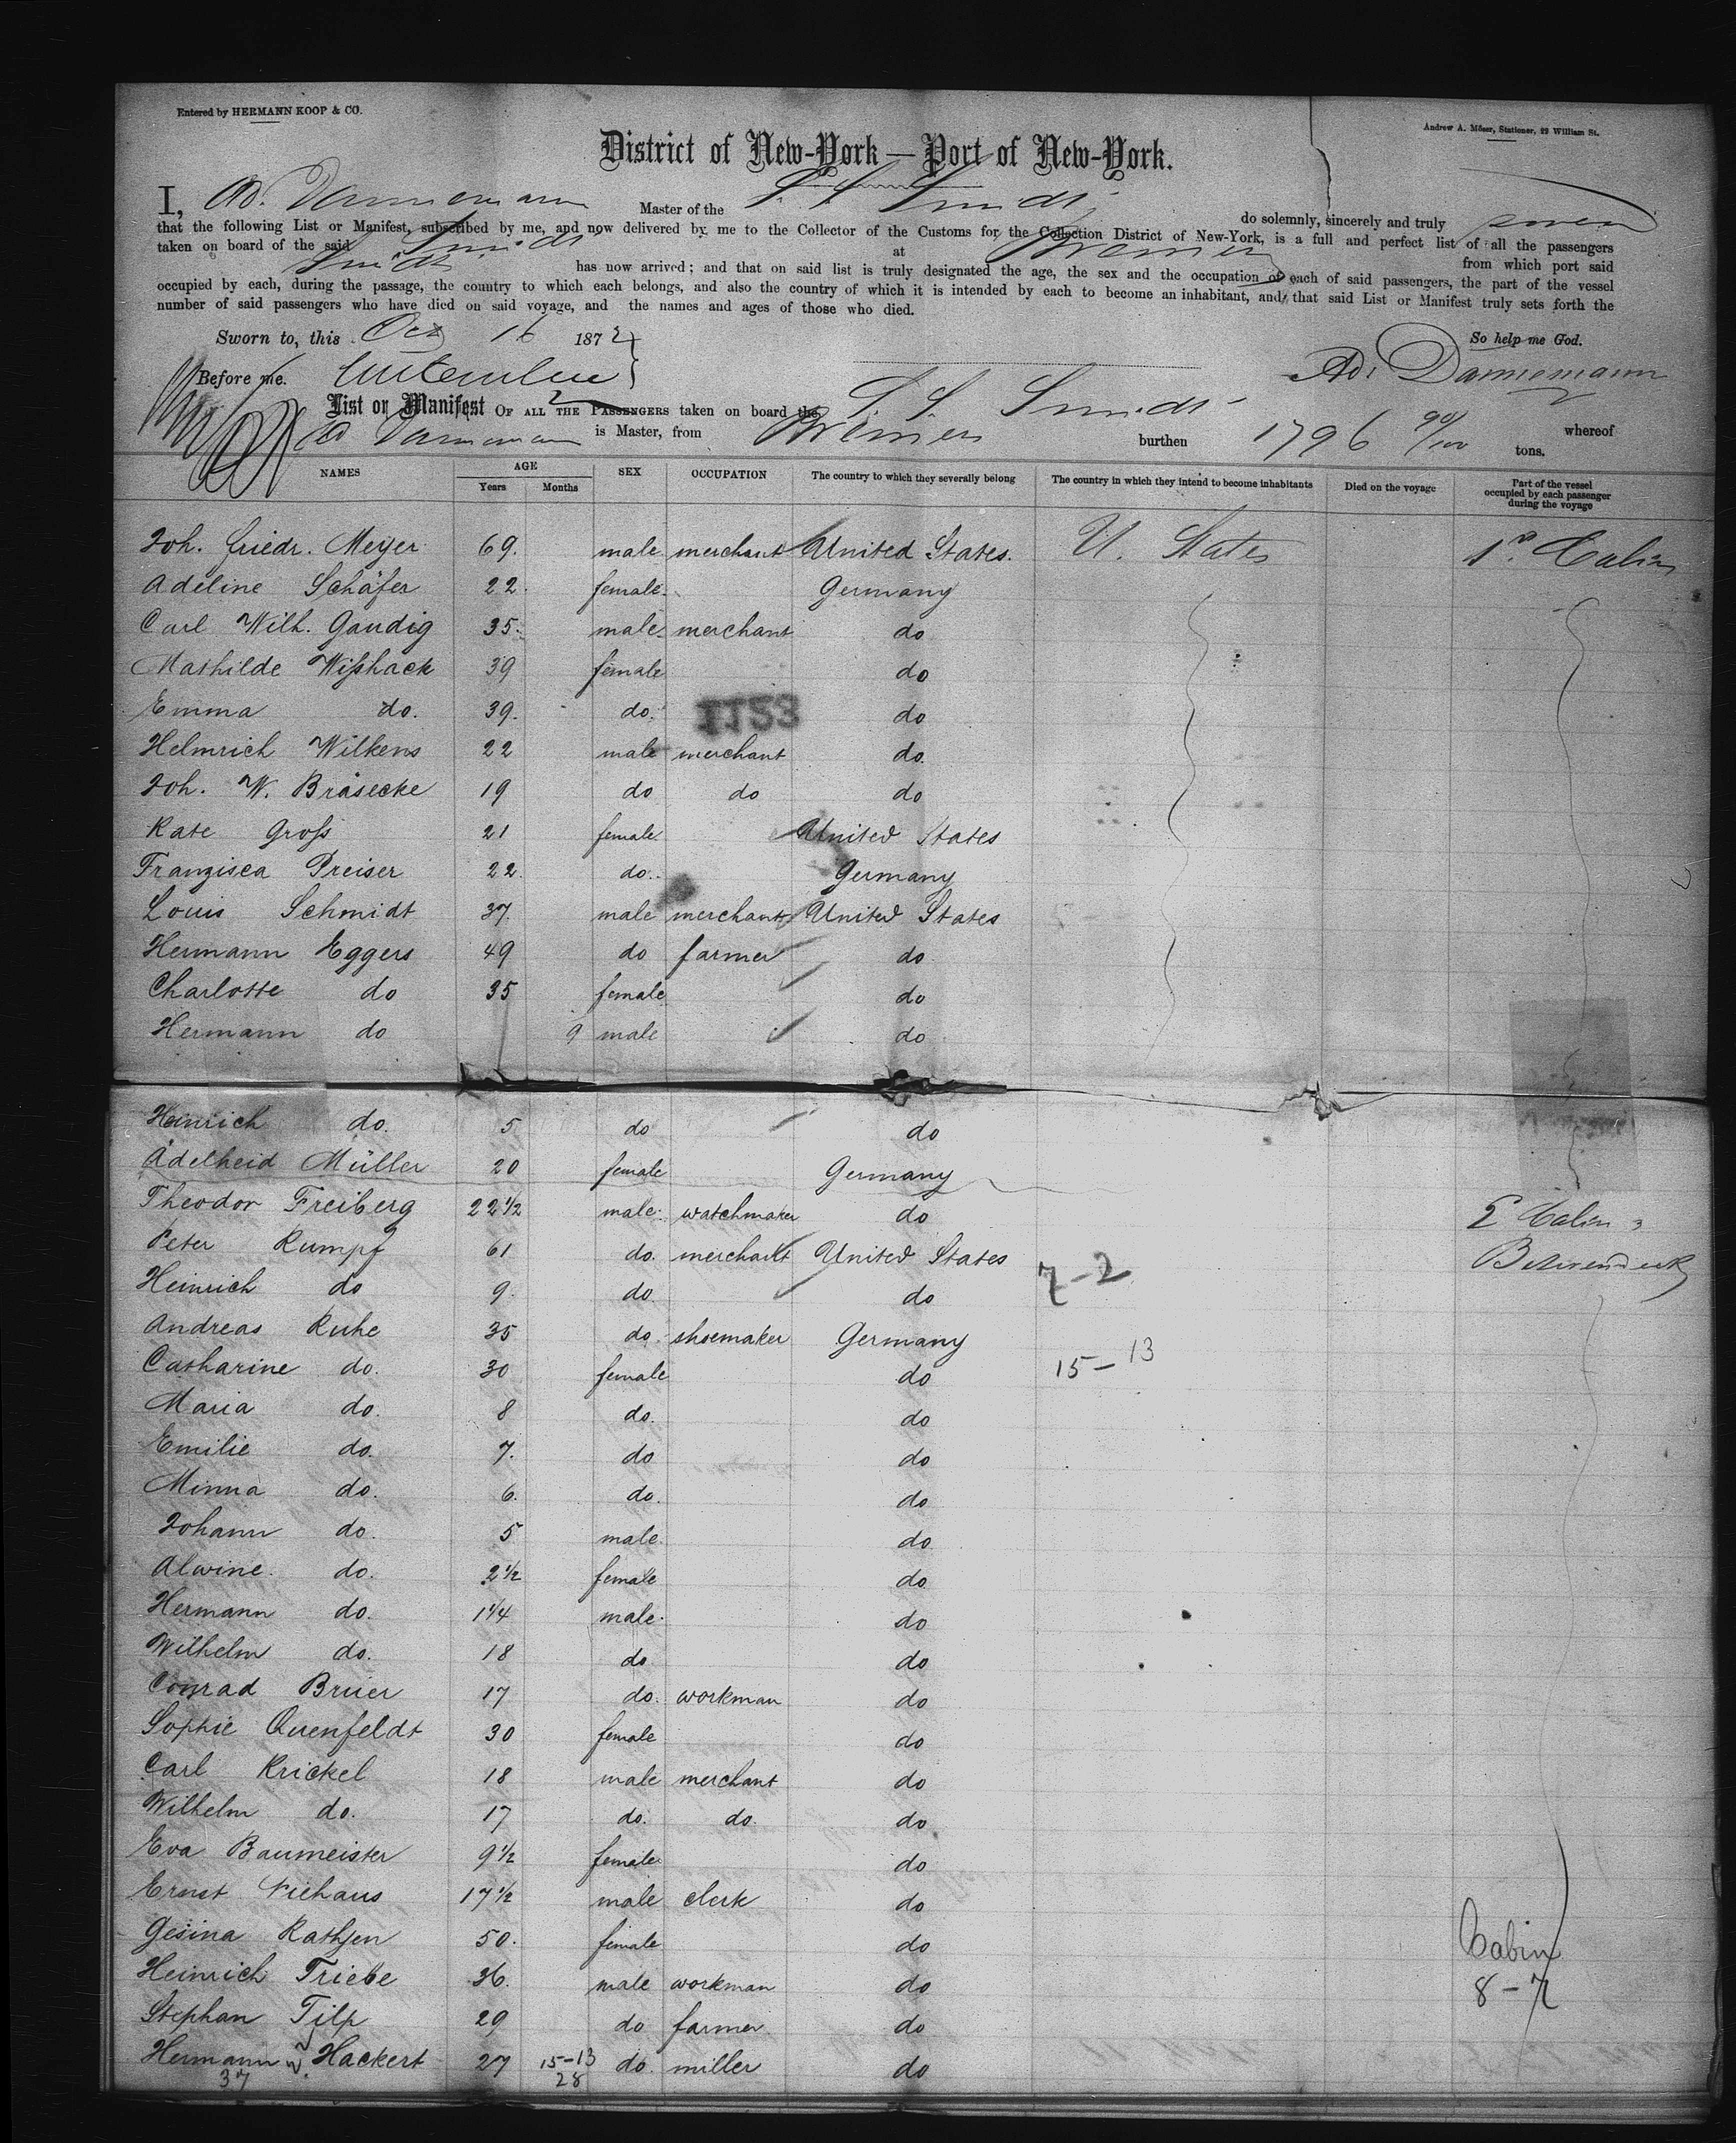 Entered by HERMANN KOOP & CO.
Andrew A. Möser, Stationer, 29 William St.
District of New-York — Port of New-York.
I, Ad. Dannemann Master of the S. S. Smidt do solemnly, sincerely and truly swear
that the following List or Manifest, subscribed by me, and now delivered by me to the Collector of the Customs for the Collection District of New-York, is a full and perfect list of all the passengers
taken on board of the said Smidt at Bremen from which port said
Smidt has now arrived; and that on said list is truly designated the age, the sex and the occupation of each of said passengers, the part of the vessel
occupied by each, during the passage, the country to which each belongs, and also the country of which it is intended by each to become an inhabitant, and that said List or Manifest truly sets forth the
number of said passengers who have died on said voyage, and the names and ages of those who died.
Sworn to, this Oct 16 1872 So help me God.
Before me. Ad. Dannemann
List or Manifest OF ALL THE PASSENGERS taken on board the S. S. Smidt
Ad Dannemann is Master, from Bremen burthen 1796 90/100 tons. whereof
NAMES AGE Years Months SEX OCCUPATION The country to which they severally belong The country in which they intend to become inhabitants Died on the voyage Part of the vessel occupied by each passenger during the voyage
Joh. Friedr. Meyer 69. male merchant United States. U. States 1st Cabin
Adeline Schäfer 22. female. Germany
Carl Wilh. Gaudig 35. male. merchant do
Mathilde Wißhack 39 female do
Emma do. 39. do. do
1123
Helmrich Wilkens 22 male merchant do.
Joh. W. Bräsecke 19 do do do
Kate Groß 21 female United States
Franzisca Preiser 22. do. Germany
Louis Schmidt 37. male merchant United States
Hermann Eggers 49 do farmer do
Charlotte do 35 female do
Hermann do 9 male do
Heinrich do. 5 do do
Adelheid Müller 20 female Germany
Theodor Freiberg 22 1/2 male. watchmaker do 2 Cabin
Peter Rumpf 61 do. merchant United States
Heinrich do 9. do. do 7-2
Andreas Ruhe 35 do. shoemaker Germany
Catharine do. 30 female do 15-13
Maria do. 8 do. do
Emilie do. 7. do do
Minna do. 6. do. do
Johann do. 5 male. do
Alwine. do. 2 1/2 female do
Hermann do. 1 1/4 male. do
Wilhelm do. 18 do do
Conrad Brüer 17 do. workman do
Sophie Quenfeldt 30 female do
Carl Krickel 18 male merchant do
Wilhelm do. 17 do. do. do
Eva Baumeister 9 1/2 female. do
Ernst Niehaus 17 1/2 male clerk do
Gesina Rathjen 50. female do Cabin
Heinrich Triebe 36. male workman do 8-7
Stephan Tilp 29 do farmer. do
Hermann Hackert 27 15-13 do. miller do
37 28